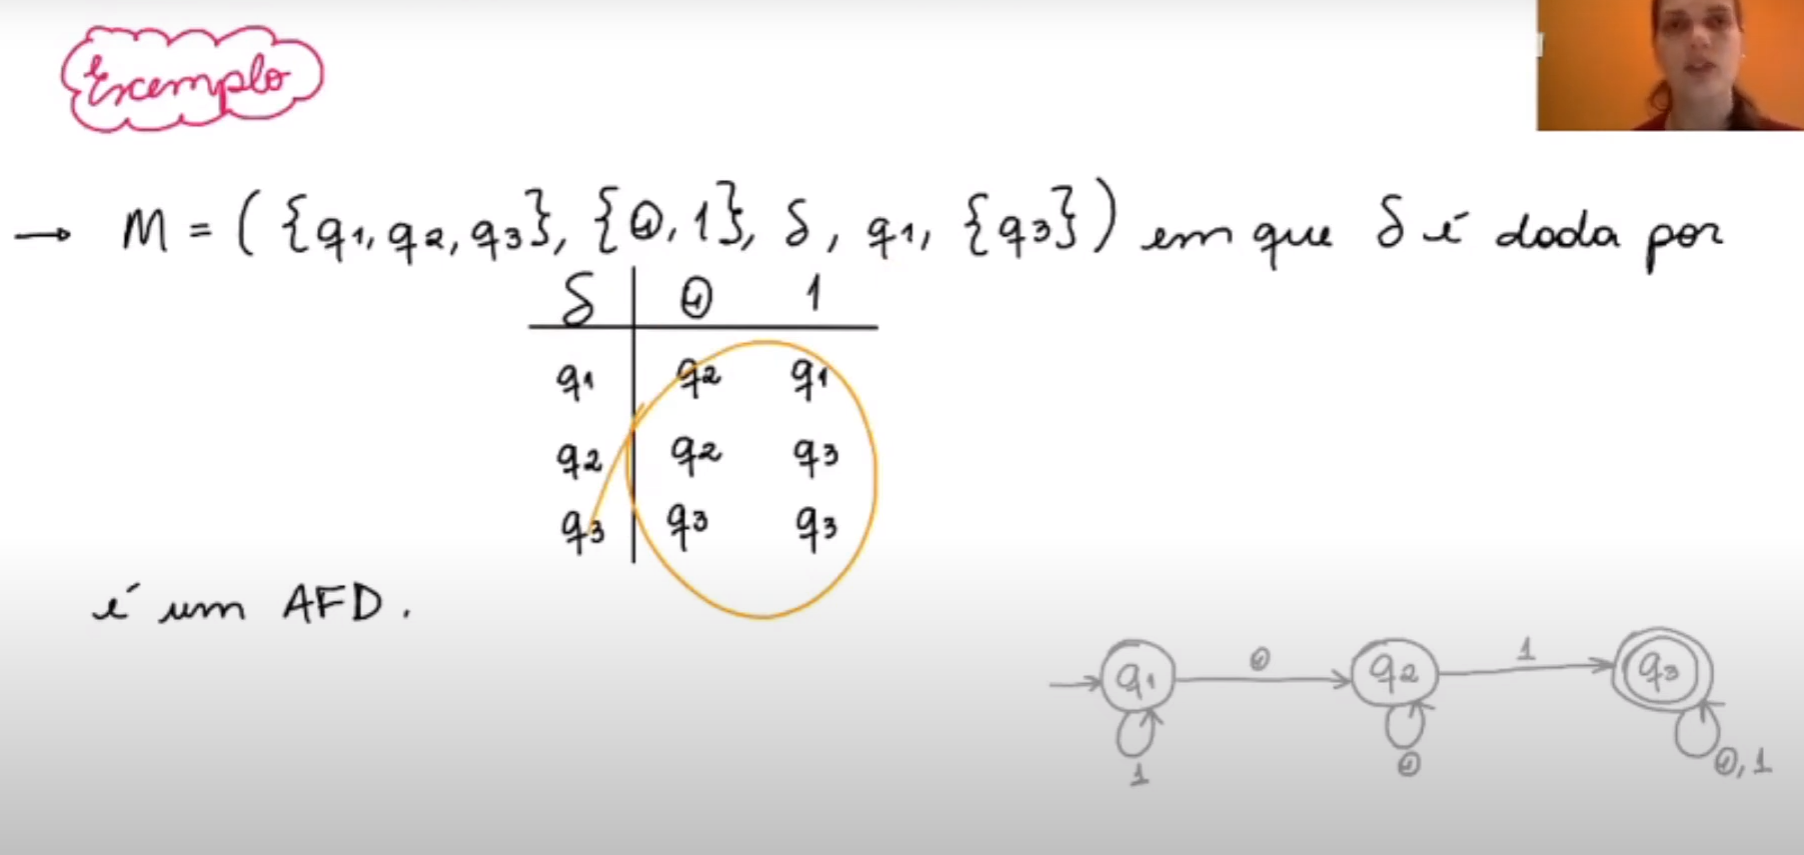 Exemplo
→ M = ( {q1, q2, q3}, {0, 1}, δ, q1, {q3} ) em que δ é dada por
δ 0 1
q1 q2 q1
q2 q2 q3
q3 q3 q3
é um AFD.
q1 0 q2 1 q3
1 0 0, 1